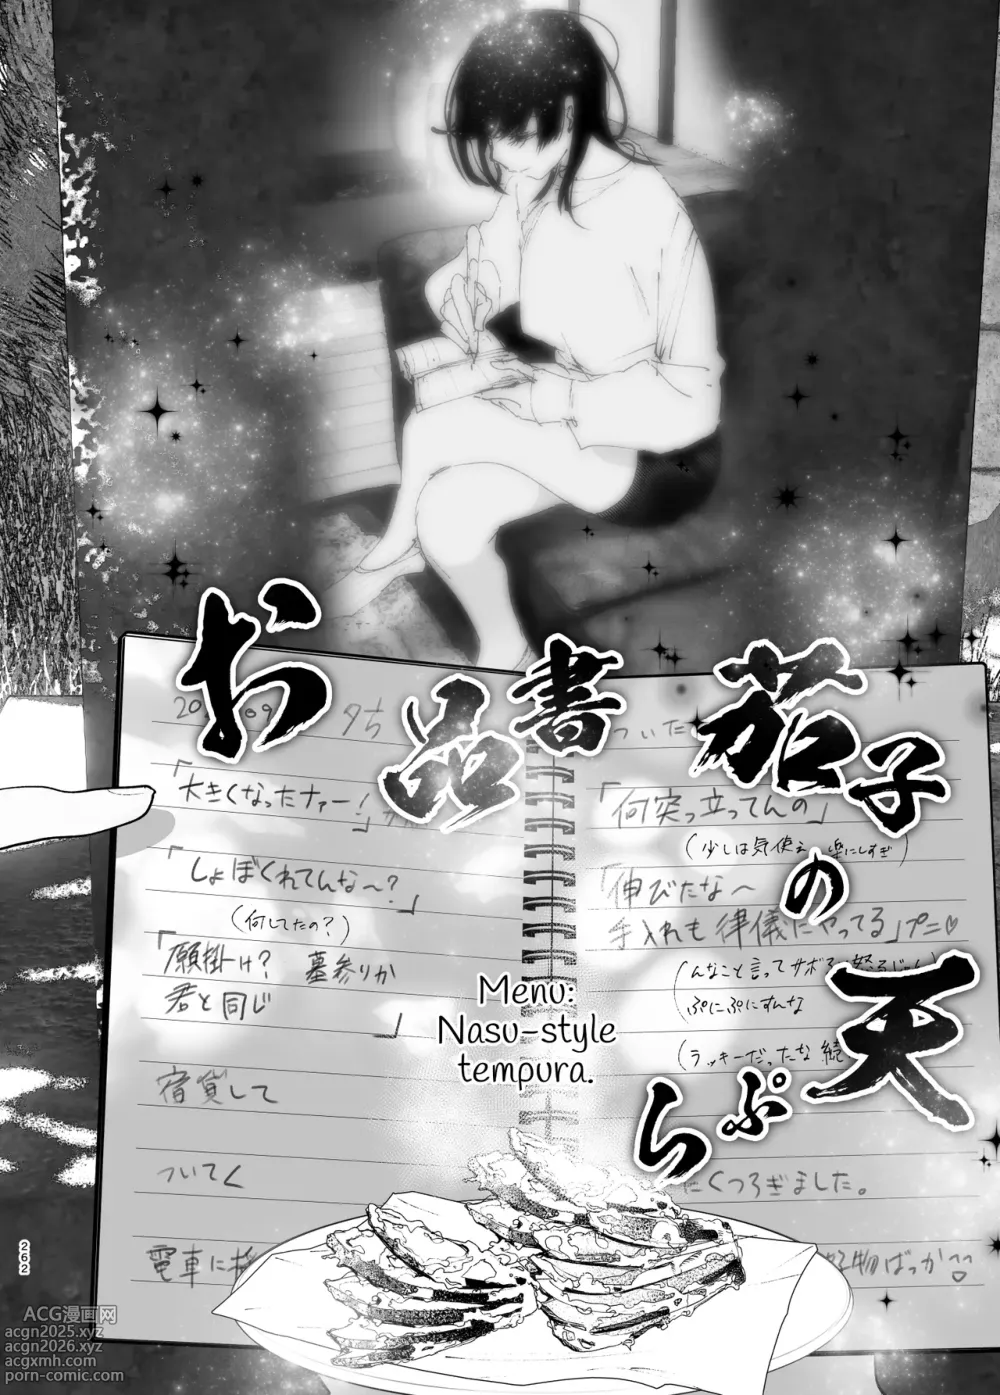 お品書
茄子の天ぷら
Menu:
Nasu-style
tempura.
「大きくなったナァー!」
「しょぼくれてんな〜?」
(何してたの?)
「願掛け? 墓参りか
君と同じ」
宿貸して
ついてく
電車に
ついた
「何突っ立ってんの」
(少しは気使え 楽にしすぎ)
「伸びたな〜
手入れも律儀にやってる」プニ♡
(んなこと言ってサボ
(ぷにぷにすんな
(ラッキーだったな 続
くつろぎました。
物ばっか
262
ACG漫画网
acgn2025.xyz
acgn2026.xyz
acgxmh.com
porn-comic.com